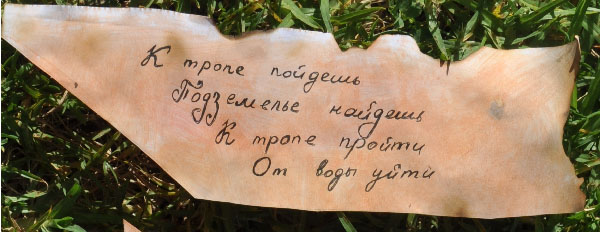 К тропе пойдешь
Подземелье найдешь
К тропе пройти
От воды уйти